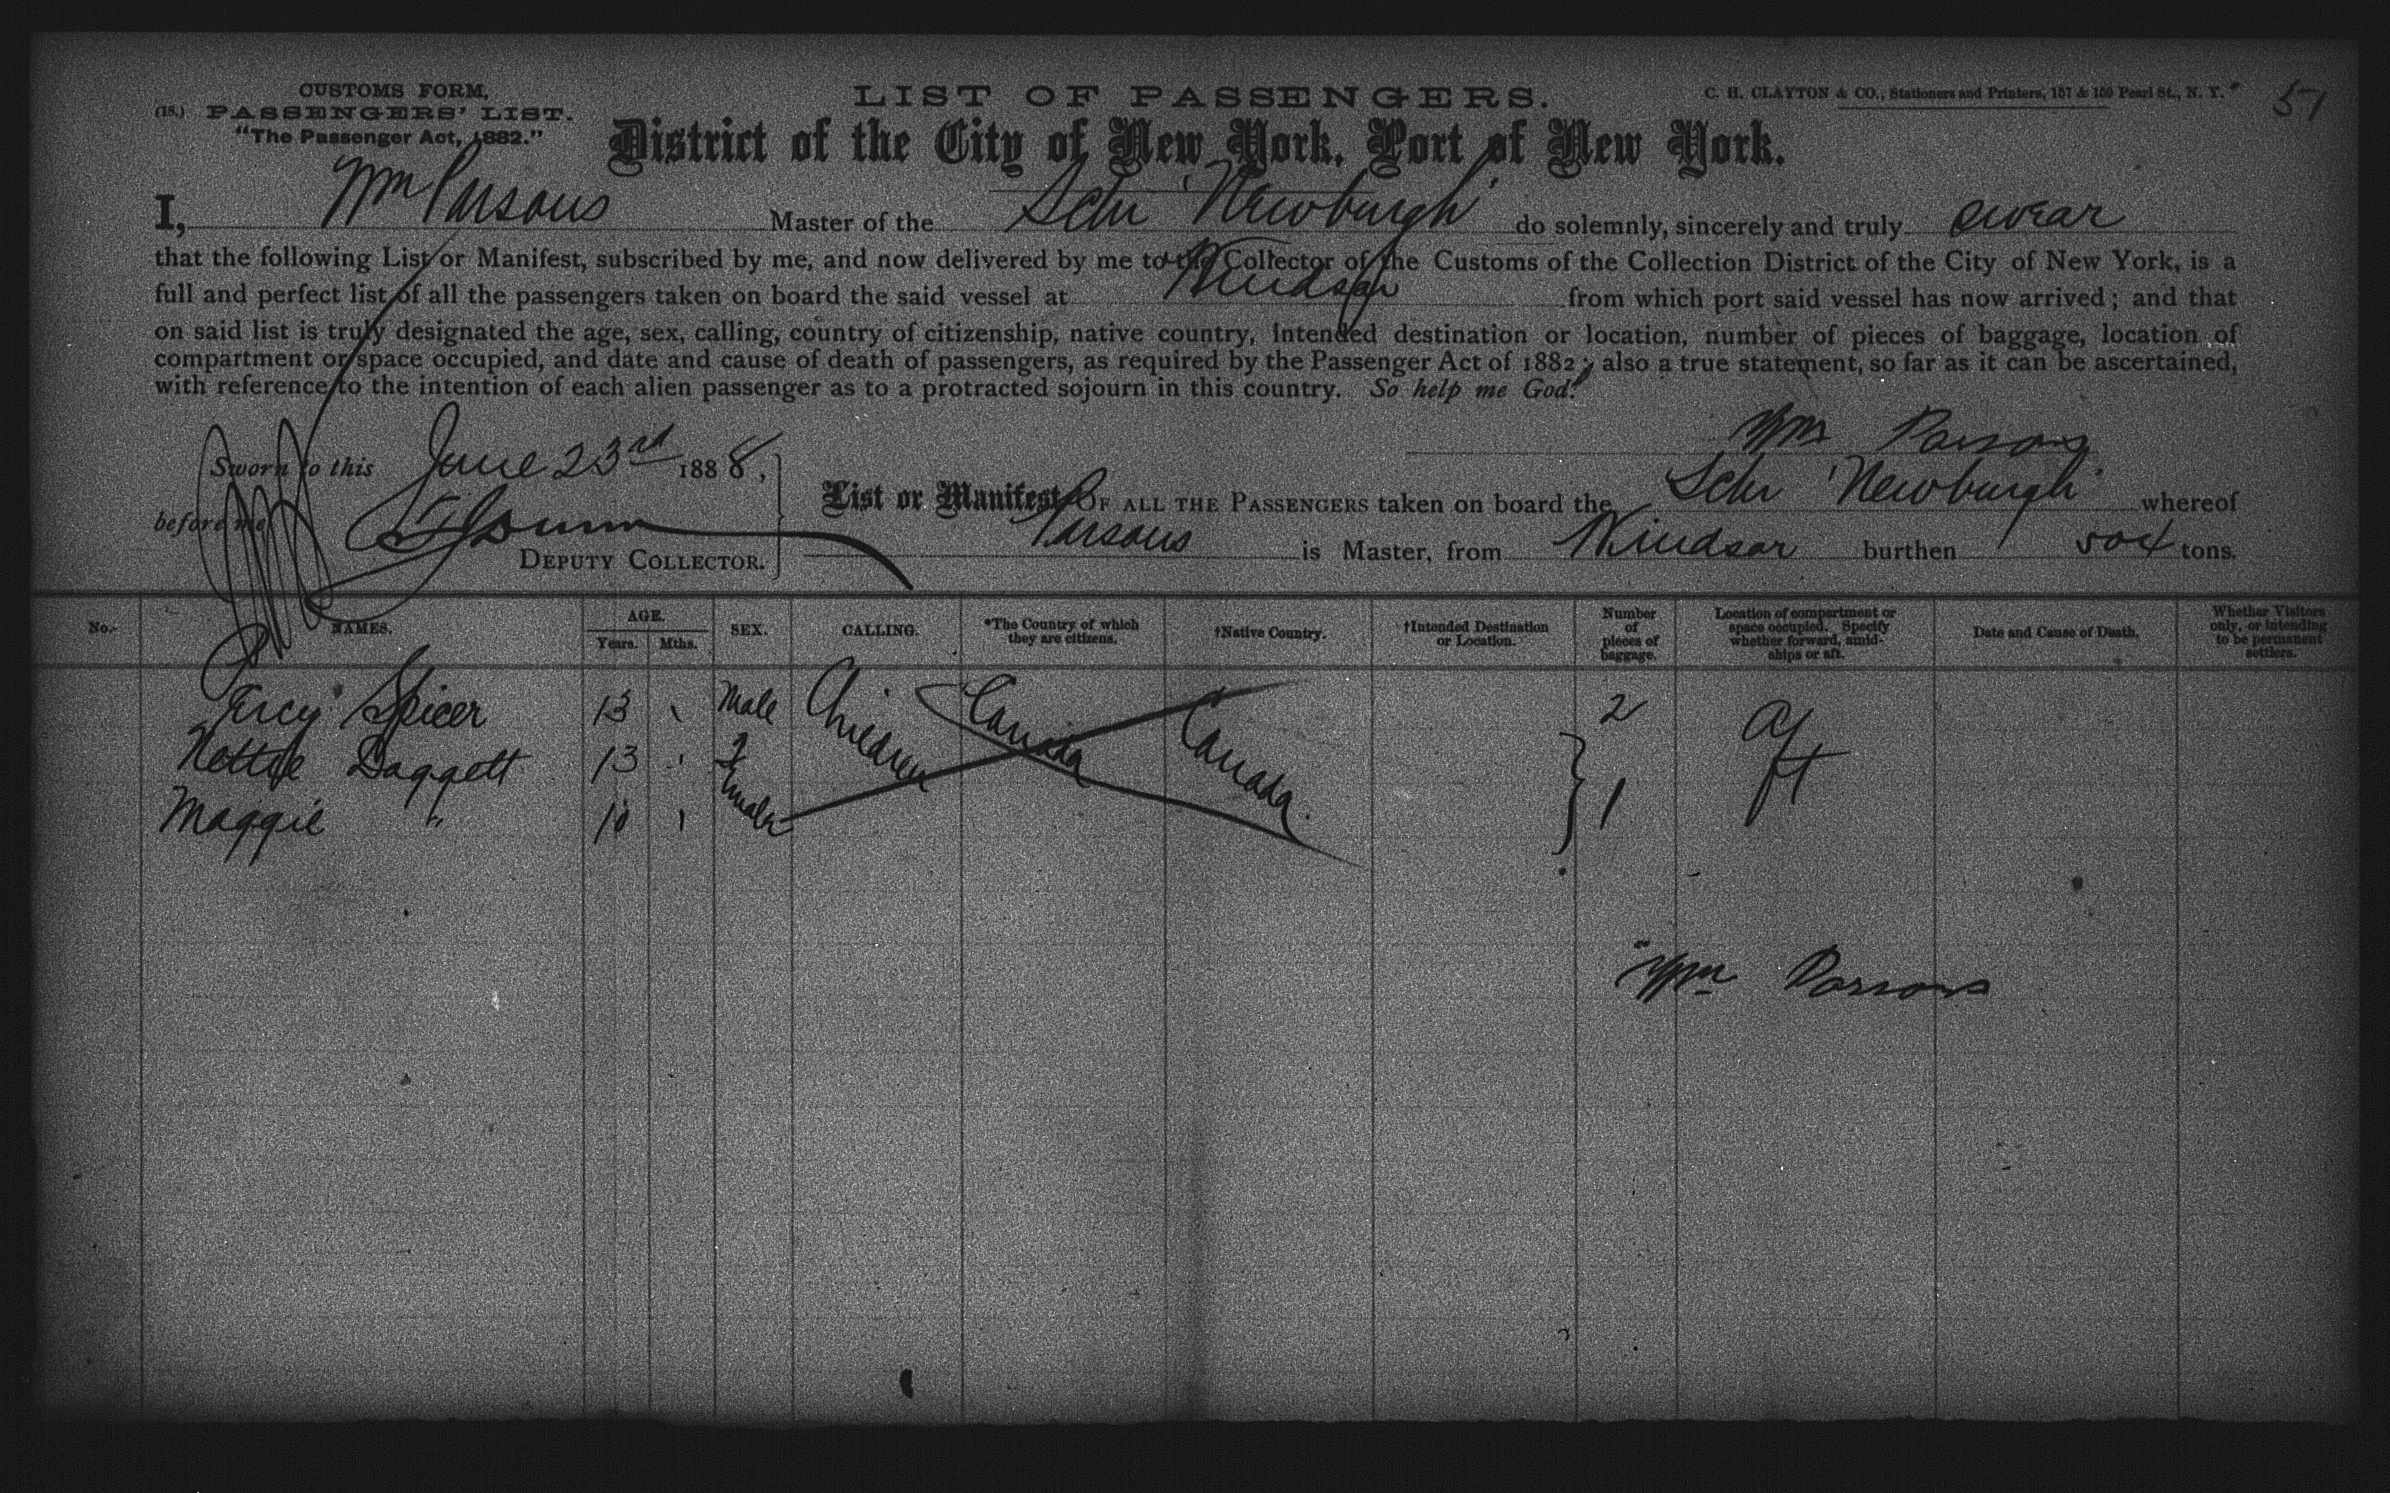 CUSTOMS FORM,
(15.) PASSENGERS' LIST.
"The Passenger Act, 1882."
LIST OF PASSENGERS.
C. H. CLAYTON & CO., Stationers and Printers, 157 & 159 Pearl St., N. Y.
57
District of the City of New York, Port of New York.
I, Wm Parsons Master of the Schr 'Newburgh' do solemnly, sincerely and truly swear
that the following List or Manifest, subscribed by me, and now delivered by me to the Collector of the Customs of the Collection District of the City of New York, is a
full and perfect list of all the passengers taken on board the said vessel at Windsor from which port said vessel has now arrived; and that
on said list is truly designated the age, sex, calling, country of citizenship, native country, intended destination or location, number of pieces of baggage, location of
compartment or space occupied, and date and cause of death of passengers, as required by the Passenger Act of 1882; also a true statement, so far as it can be ascertained,
with reference to the intention of each alien passenger as to a protracted sojourn in this country. So help me God.
Wm Parsons
Sworn to this June 23rd 1888,
before me
DEPUTY COLLECTOR.
List or Manifest OF ALL THE PASSENGERS taken on board the Schr 'Newburgh' whereof
Parsons is Master, from Windsor burthen 504 tons.
No. NAMES. AGE. Years. Mths. SEX. CALLING. *The Country of which they are citizens. †Native Country. †Intended Destination or Location. Number of pieces of baggage. Location of compartment or space occupied. Specify whether forward, amidships or aft. Date and Cause of Death. Whether Visitors only, or intending to be permanent settlers.
Percy Spicer 13 Male Children Canada Canada 2 Aft
Nettie Daggett 13 Females 1
Maggie " 10
Wm Parsons